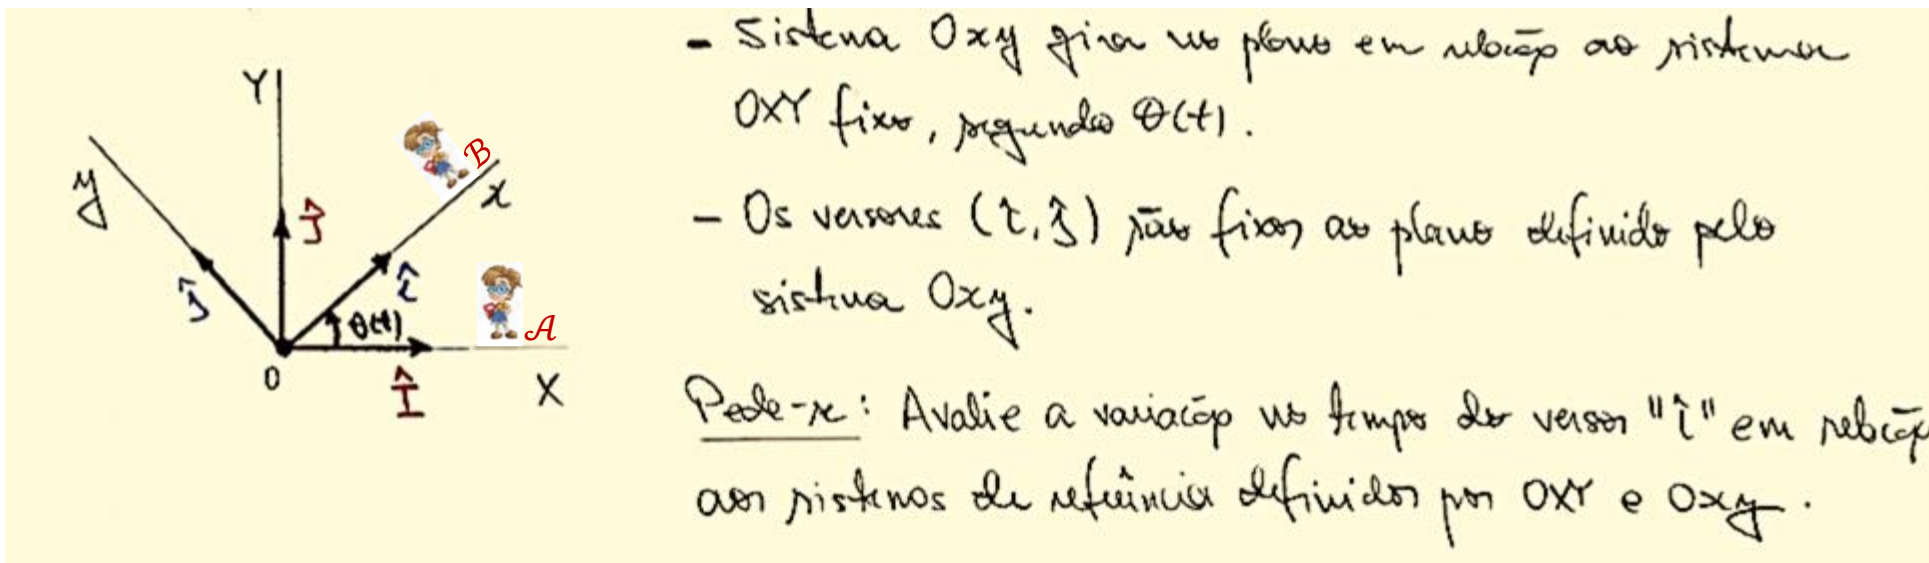 Y
B
y
x
Ĵ
ĵ
î
A
θ(t)
O
Î
X
- Sistema Oxy gira no plano em relação ao sistema
OXY fixo, segundo θ(t).
- Os versores (î, ĵ) são fixos ao plano definido pelo
sistema Oxy.
Pede-se: Avalie a variação no tempo do versor "î" em relação
aos sistemas de referência definidos por OXY e Oxy.